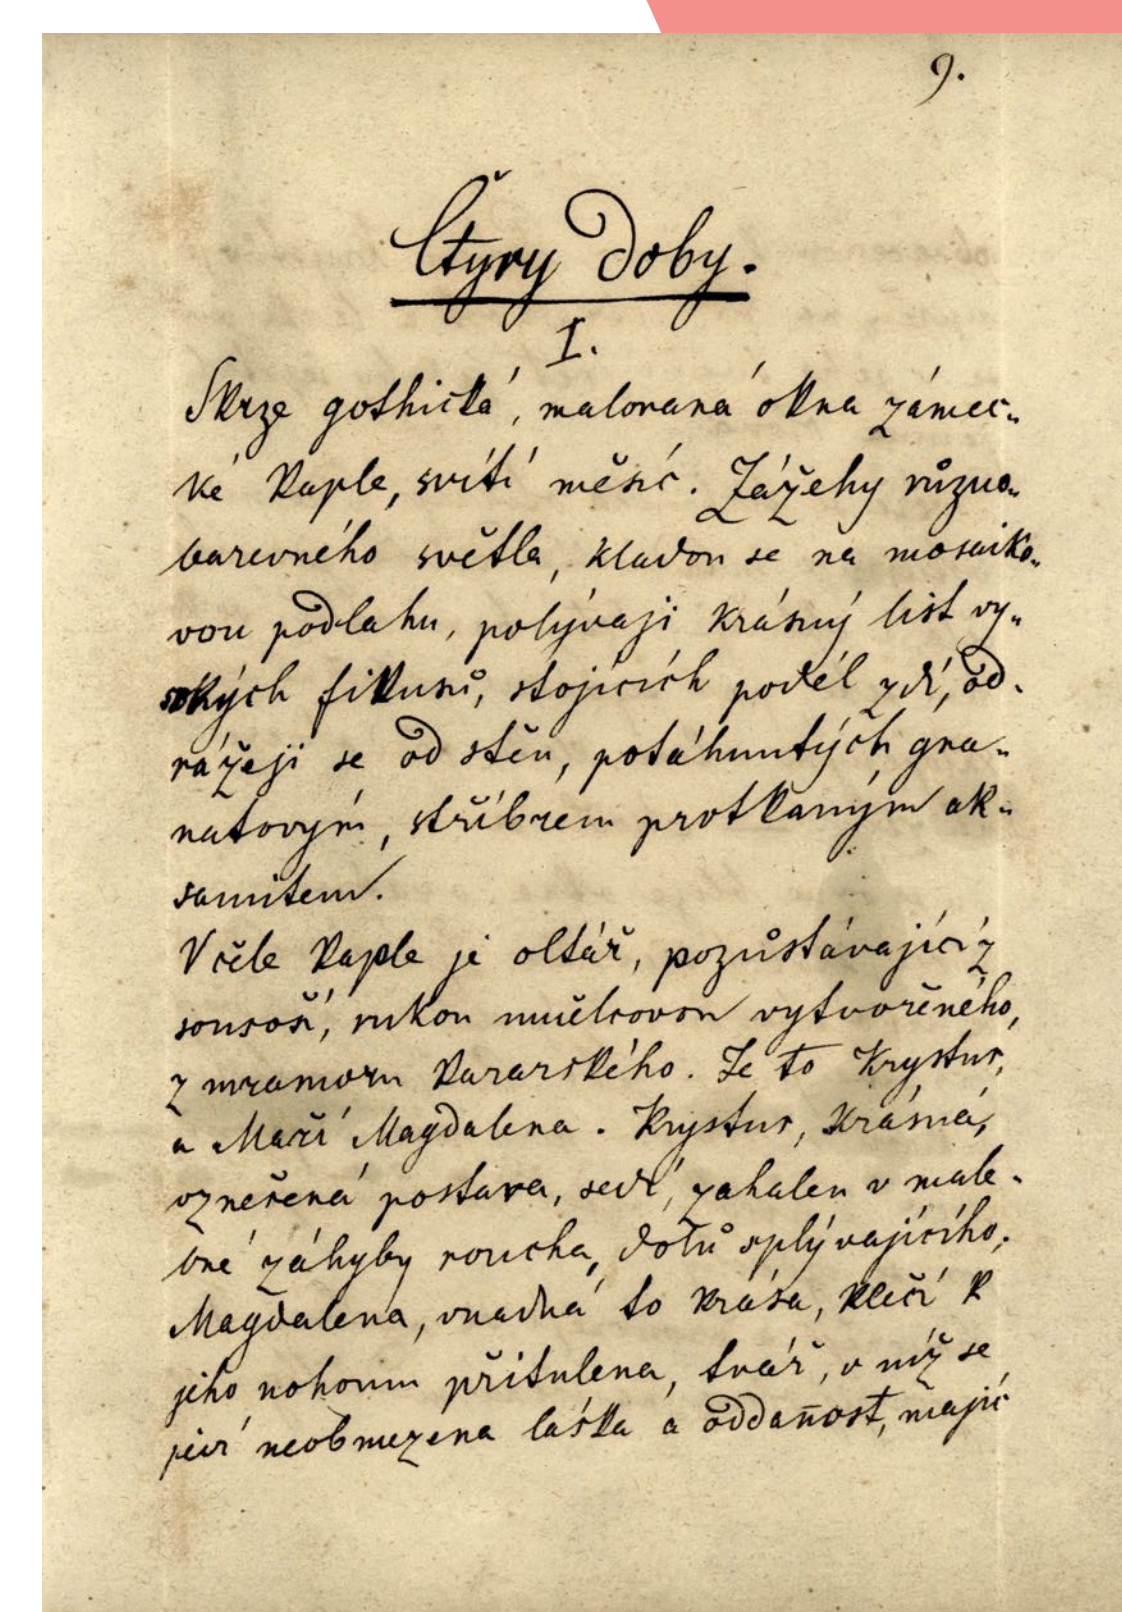 9.
Čtyry doby.
I.
Skrze gothická, malovaná okna zámec-
ké kaple, svítí měsíc. Zážehy různo-
barevného světla, kladou se na mosaiko-
vou podlahu, polývají krásný list vy-
sokých fikusů, stojících podél zdí, od-
rážejí se od stěn, potáhnutých gra-
natovým, stříbrem protkaným ak-
samitem.
V čele kaple je oltář, pozůstávající z
sousoší, rukou umělcovou vytvořeného,
z mramoru kararského. Je to Krystus,
a Maří Magdalena. Krystus, krásná,
vznešená postava, sedí, zahalen v male-
bné záhyby roucha, dolů splývajícího.
Magdalena, vnadná to krása, klečí k
jeho nohoum přitulena, tvář, v níž se
jeví neobmezena láska a oddanost, majíc